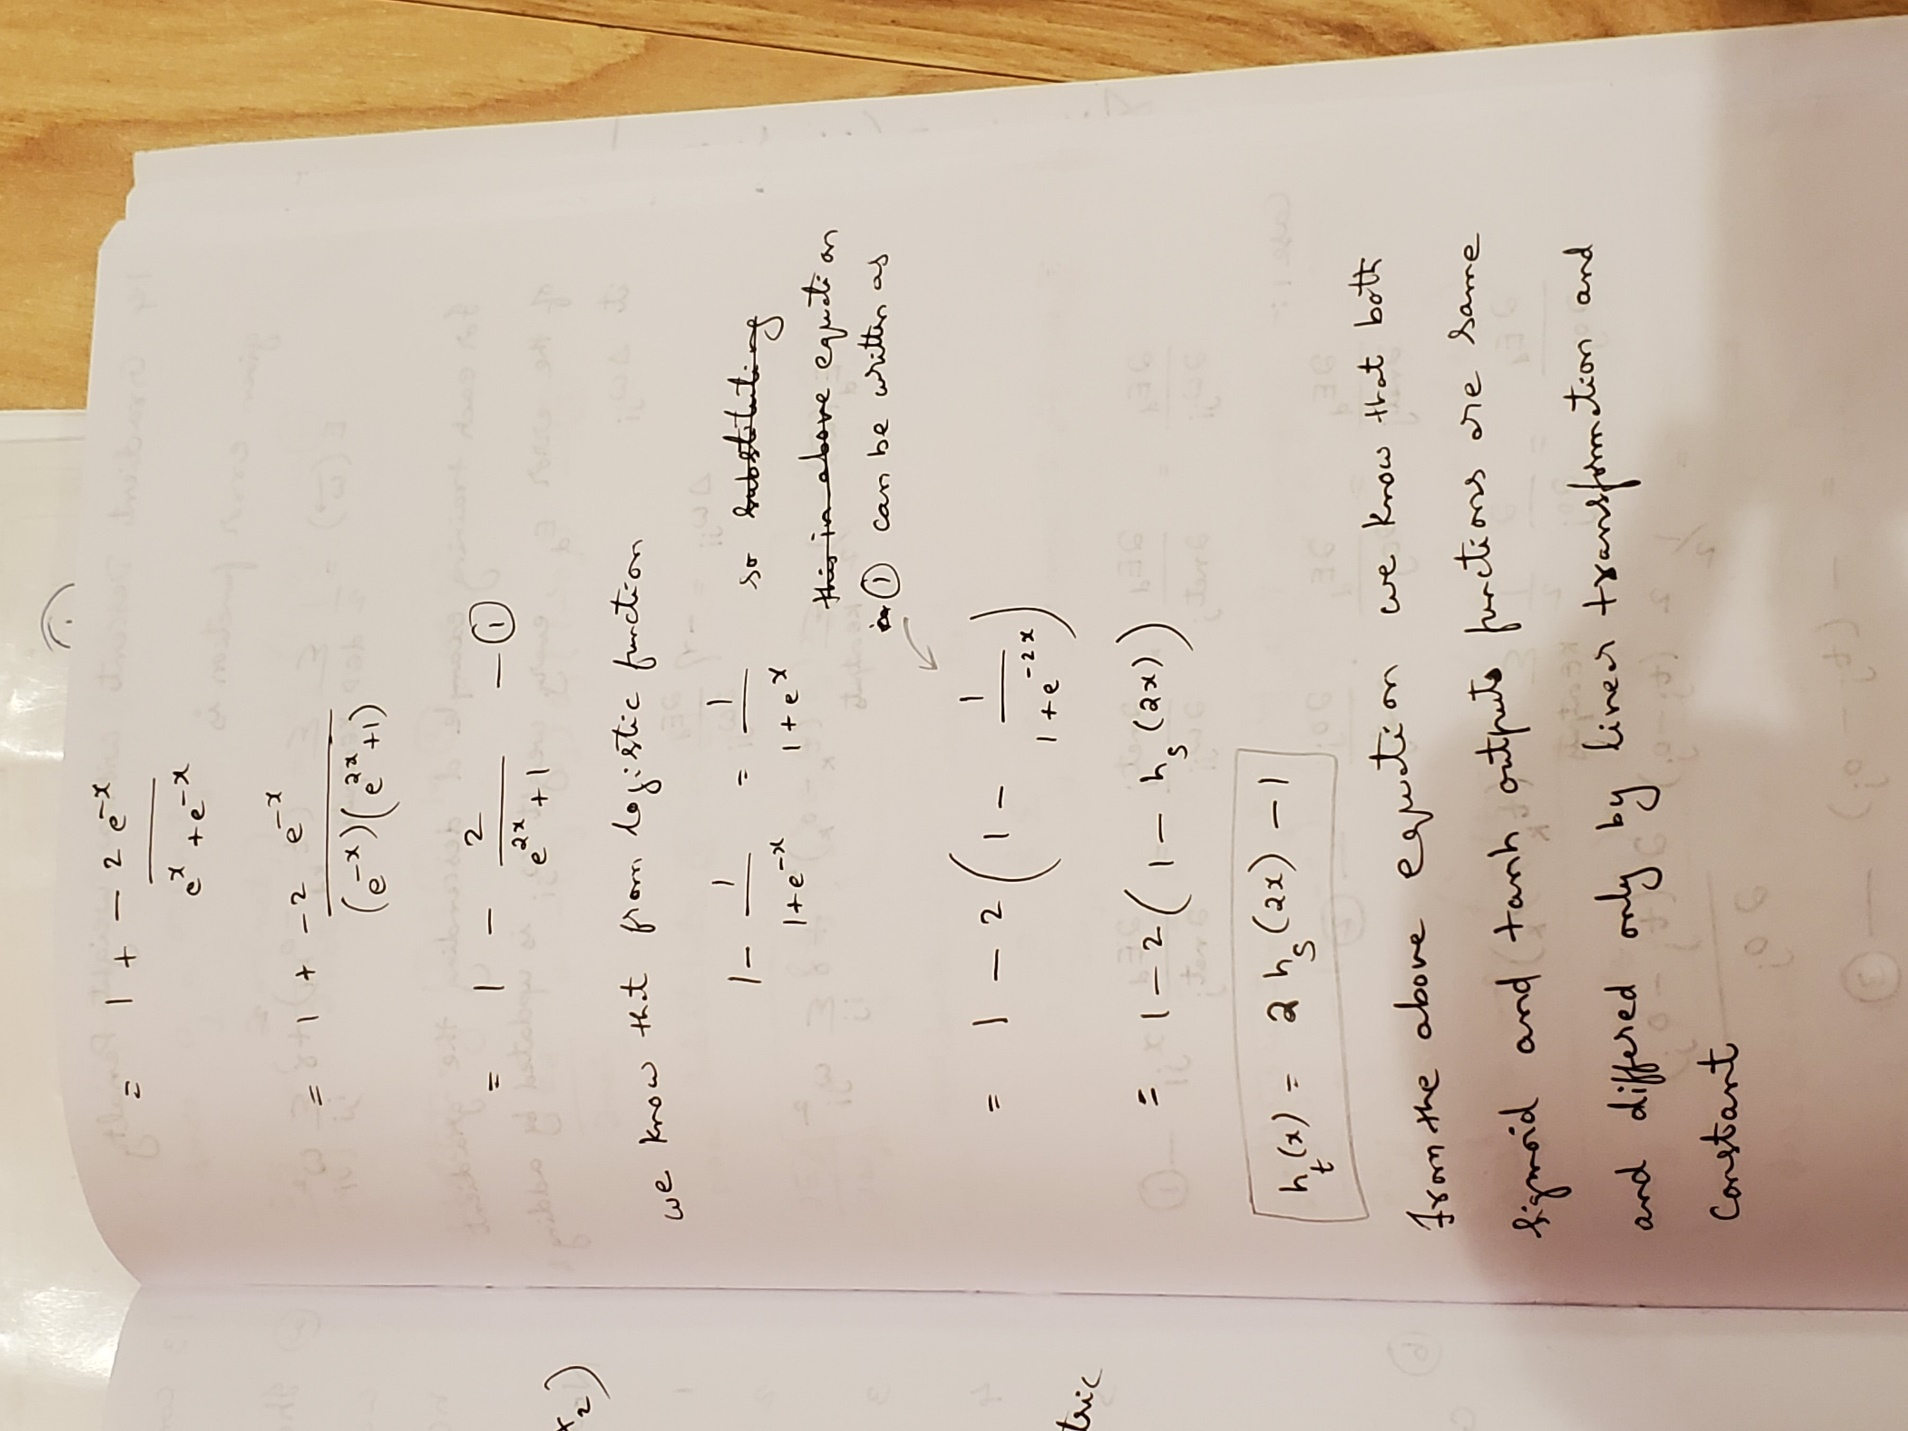 = 1 + -2e^-x / (e^x + e^-x)
= 1 + -2 e^-x / ((e^-x)(e^2x + 1))
= 1 - 2 / (e^2x + 1) — ①
we know that from logistic function
1 - 1 / (1+e^-x) = 1 / (1+e^x) so substituting
this in above equation
in ① can be written as
= 1 - 2 ( 1 - 1 / (1+e^-2x) )
= 1 - 2 ( 1 - h_s(2x) )
h_t(x) = 2 h_s(2x) - 1
From the above equation we know that both
sigmoid and tanh outputs functions are same
and differed only by linear transformation and
Constant
x_2)
tric